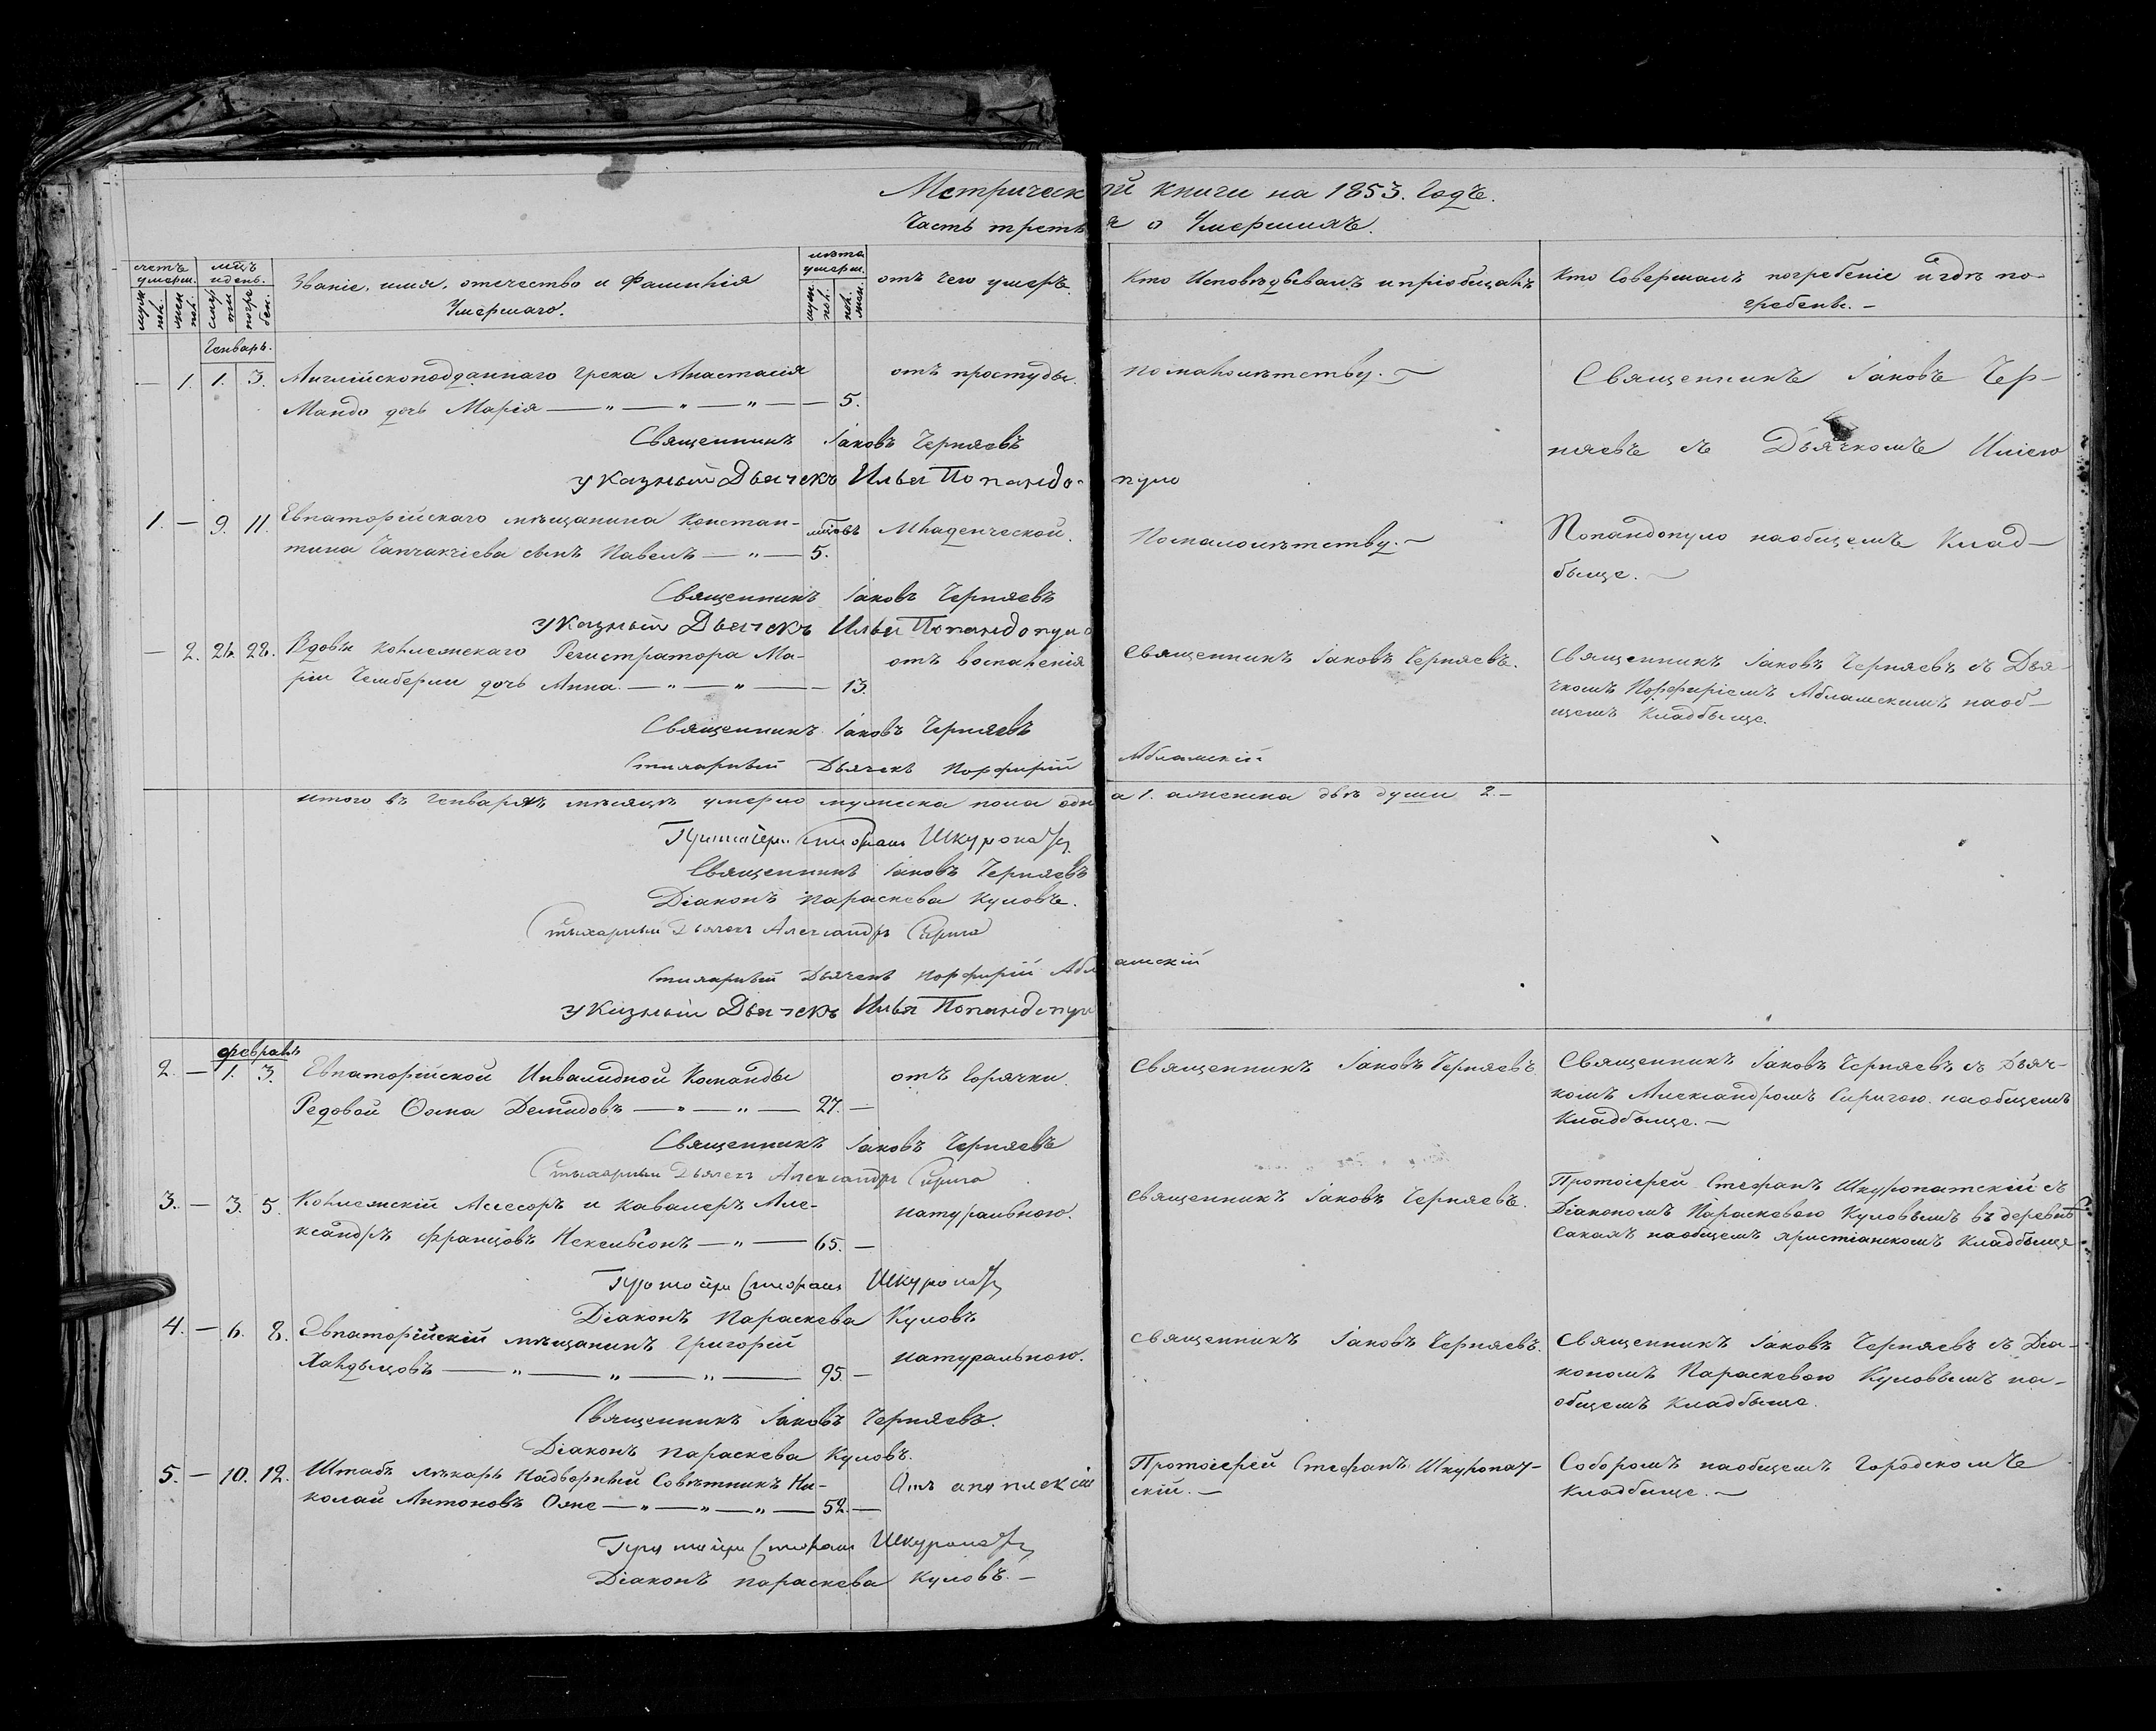 Метрической книги на 1853. Годъ.
Часть третья о Умершихъ.
счетъ умерш.
мцъ и день.
Званіе, имя, отечество и Фамилія
Умершаго.
лѣта умерш.
отъ чего умеръ.
Кто Исповѣдывалъ и пріобщалъ
Кто Совершалъ погребеніе и гдѣ по-
гребенъ. -
Генварь.
— 1. 1. 3. Англійскоподданнаго Грека Анастасія
Мандо дочь Марія — " — " — " — 5.
отъ простуды.
По малолѣтству. —
Священникъ Іаковъ Чер-
няевъ съ Дьячкомъ Иліею
Священникъ Іаковъ Черняевъ
указный Дьячекъ Илья Попандо-пуло
1. — 9. 11. Евпаторійскаго мѣщанина Констан-
тина Чапчакчіева сынъ Павелъ — " — 5.
мцовъ
Младенческой.
По малолѣтству. —
Попандопуло на общемъ Клад-
быще. —
Священникъ Іаковъ Черняевъ
указный Дьячекъ Илья Попандопуло
— 2. 26. 28. Вдовы Коллежскаго Регистратора Ма-
ріи Чемберли дочь Анна. — " — " — 13.
отъ воспаленія
Священникъ Іаковъ Черняевъ.
Священникъ Іаковъ Черняевъ съ Дья-
чкомъ Порфиріемъ Абламскимъ на об-
щемъ Кладбыще.
Священникъ Іаковъ Черняевъ
Стихарный Дьячекъ Порфирій Абламскій
итого въ Генварѣ мѣсяцѣ умерло мужеска пола одна 1. а женска двѣ души 2. —
Протоіерей Стефанъ Шкуропат
Священникъ Іаковъ Черняевъ
Діаконъ Параскева Куловъ.
Стихарный Дьячекъ Александръ Сирига
Стихарный Дьячекъ Порфирій Абламскій
указный Дьячекъ Илья Попандопул
февраль
2. — 1. 3. Евпаторійской Инвалидной Команды
Редовой Фома Демидовъ — " — " — 27. —
отъ Горячки.
Священникъ Іаковъ Черняевъ
Священникъ Іаковъ Черняевъ съ Дьяч-
комъ Александромъ Сиригою на общемъ
Кладбыще. —
Священникъ Іаковъ Черняевъ
Стихарный Дьячекъ Александръ Сирига
3. — 3. 5. Коллежскій Асессоръ и Кавалеръ Але-
ксандръ Францовъ Нексельсонъ — " — 65. —
натуральною.
Священникъ Іаковъ Черняевъ.
Протоіерей Стефанъ Шкуропатскій съ
Діакономъ Параскевою Куловымъ въ деревнѣ
Сакахъ на общемъ христіанскомъ Кладбыще
Протоіерей Стефанъ Шкуропат
Діаконъ Параскева Куловъ
4. — 6. 8. Евпаторійскій мѣщанинъ Григорій
Халдынцовъ — " — " — " — 95. —
натуральною.
Священникъ Іаковъ Черняевъ.
Священникъ Іаковъ Черняевъ съ Діа-
кономъ Параскевою Куловымъ на-
общемъ Кладбыще.
Священникъ Іаковъ Черняевъ.
Діаконъ Параскева Куловъ.
5. — 10. 12. Штабъ лѣкарь Надворный Совѣтникъ Ни-
колай Антоновъ Ояне — " — " — " — 52. —
Отъ апоплексіи
Протоіерей Стефанъ Шкуропат-
скій. —
Соборомъ на общемъ Городскомъ
Кладбище. —
Протоіерей Стефанъ Шкуропат
Діаконъ Параскева Куловъ. —